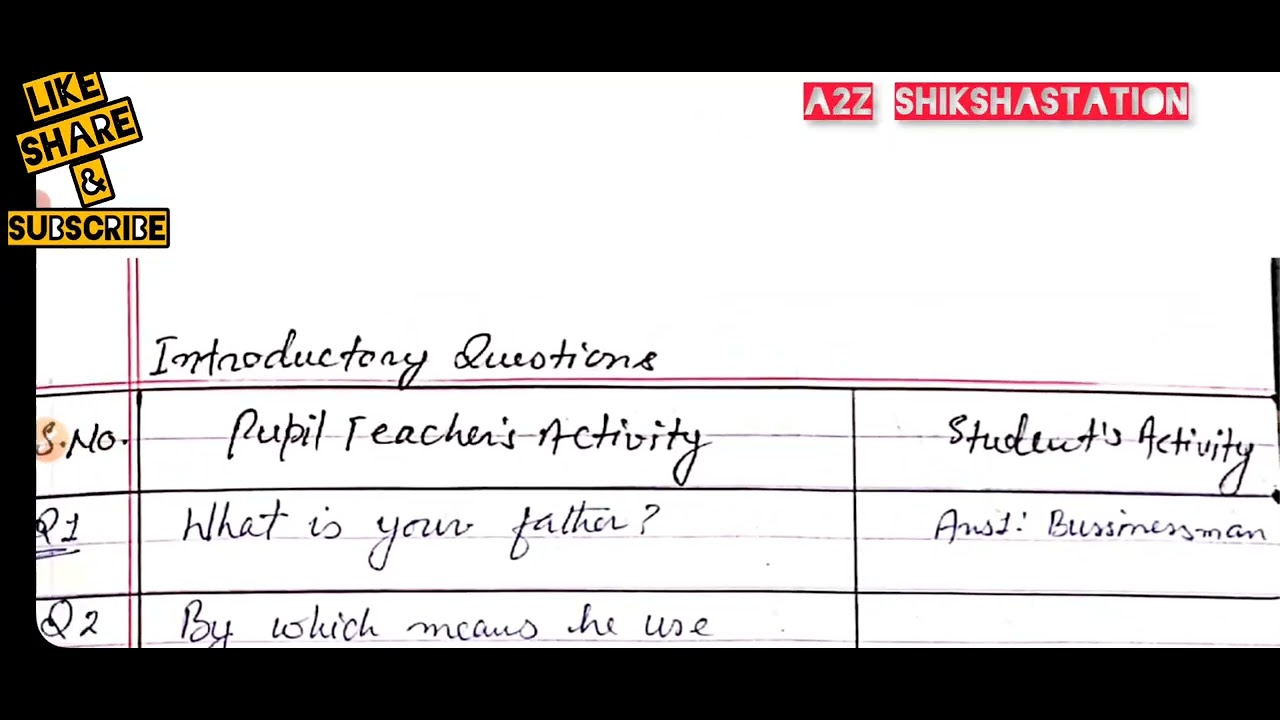 LIKE
SHARE
&
SUBSCRIBE
A2Z SHIKSHASTATION
Introductory Questions
S.No. Pupil Teacher's Activity Student's Activity
Q1 What is your father? Ans1: Bussinessman
Q2 By which means he use